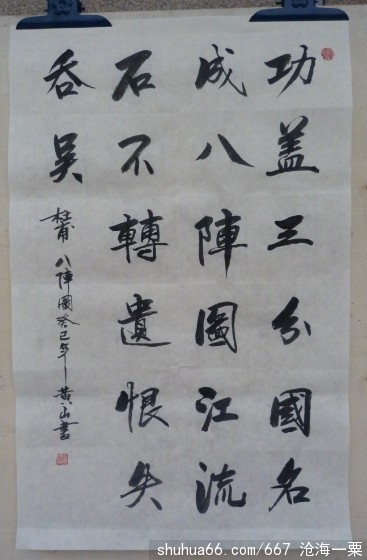 功盖三分國名
成八陣圖江流
石不轉遺恨失
吞吴
杜甫八陣圖癸巳年黄山書
shuhua66.com/667 沧海一粟